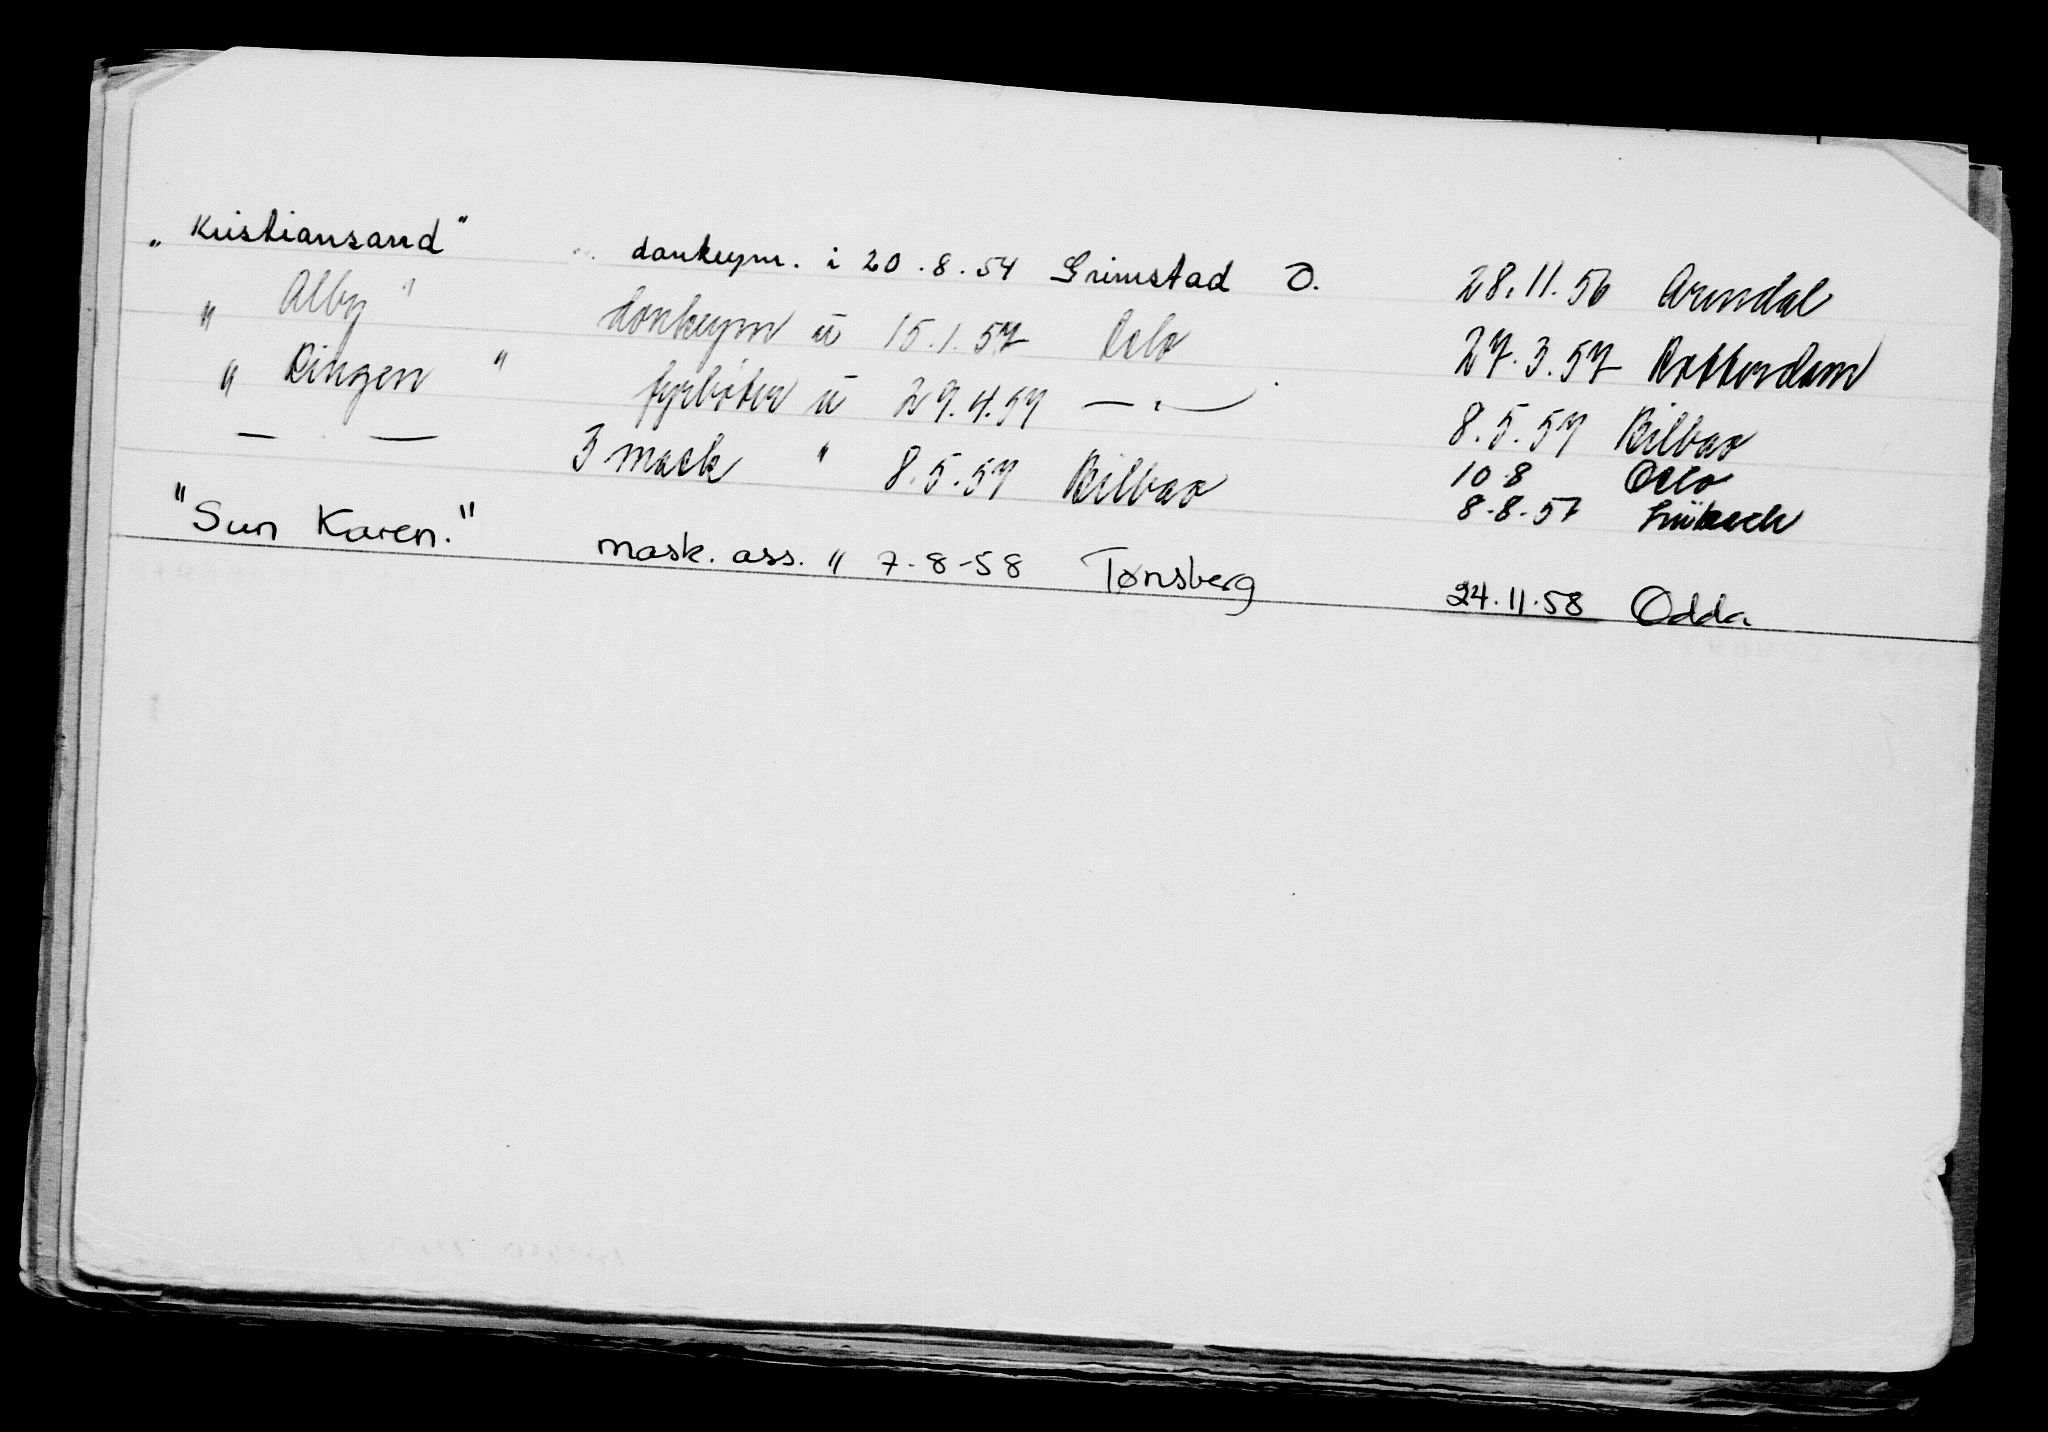 „ Kristiansand" donkeym. i 20.8.54 Grimstad O. 28.11.56 Arendal
" Alby " donkeym u 15.1.57 Oslo 27.3.57 Rotterdam
" Ringen " fyrbøter u 29.4.57 — . — 8.5.57 Bilbao
— — 3 mask " 8.5.57 Bilbao 10 8 Oslo
8.8.57 Lübeck
"Sun Karen." mask. ass. " 7.8-58 Tønsberg 24.11.58 Odda.